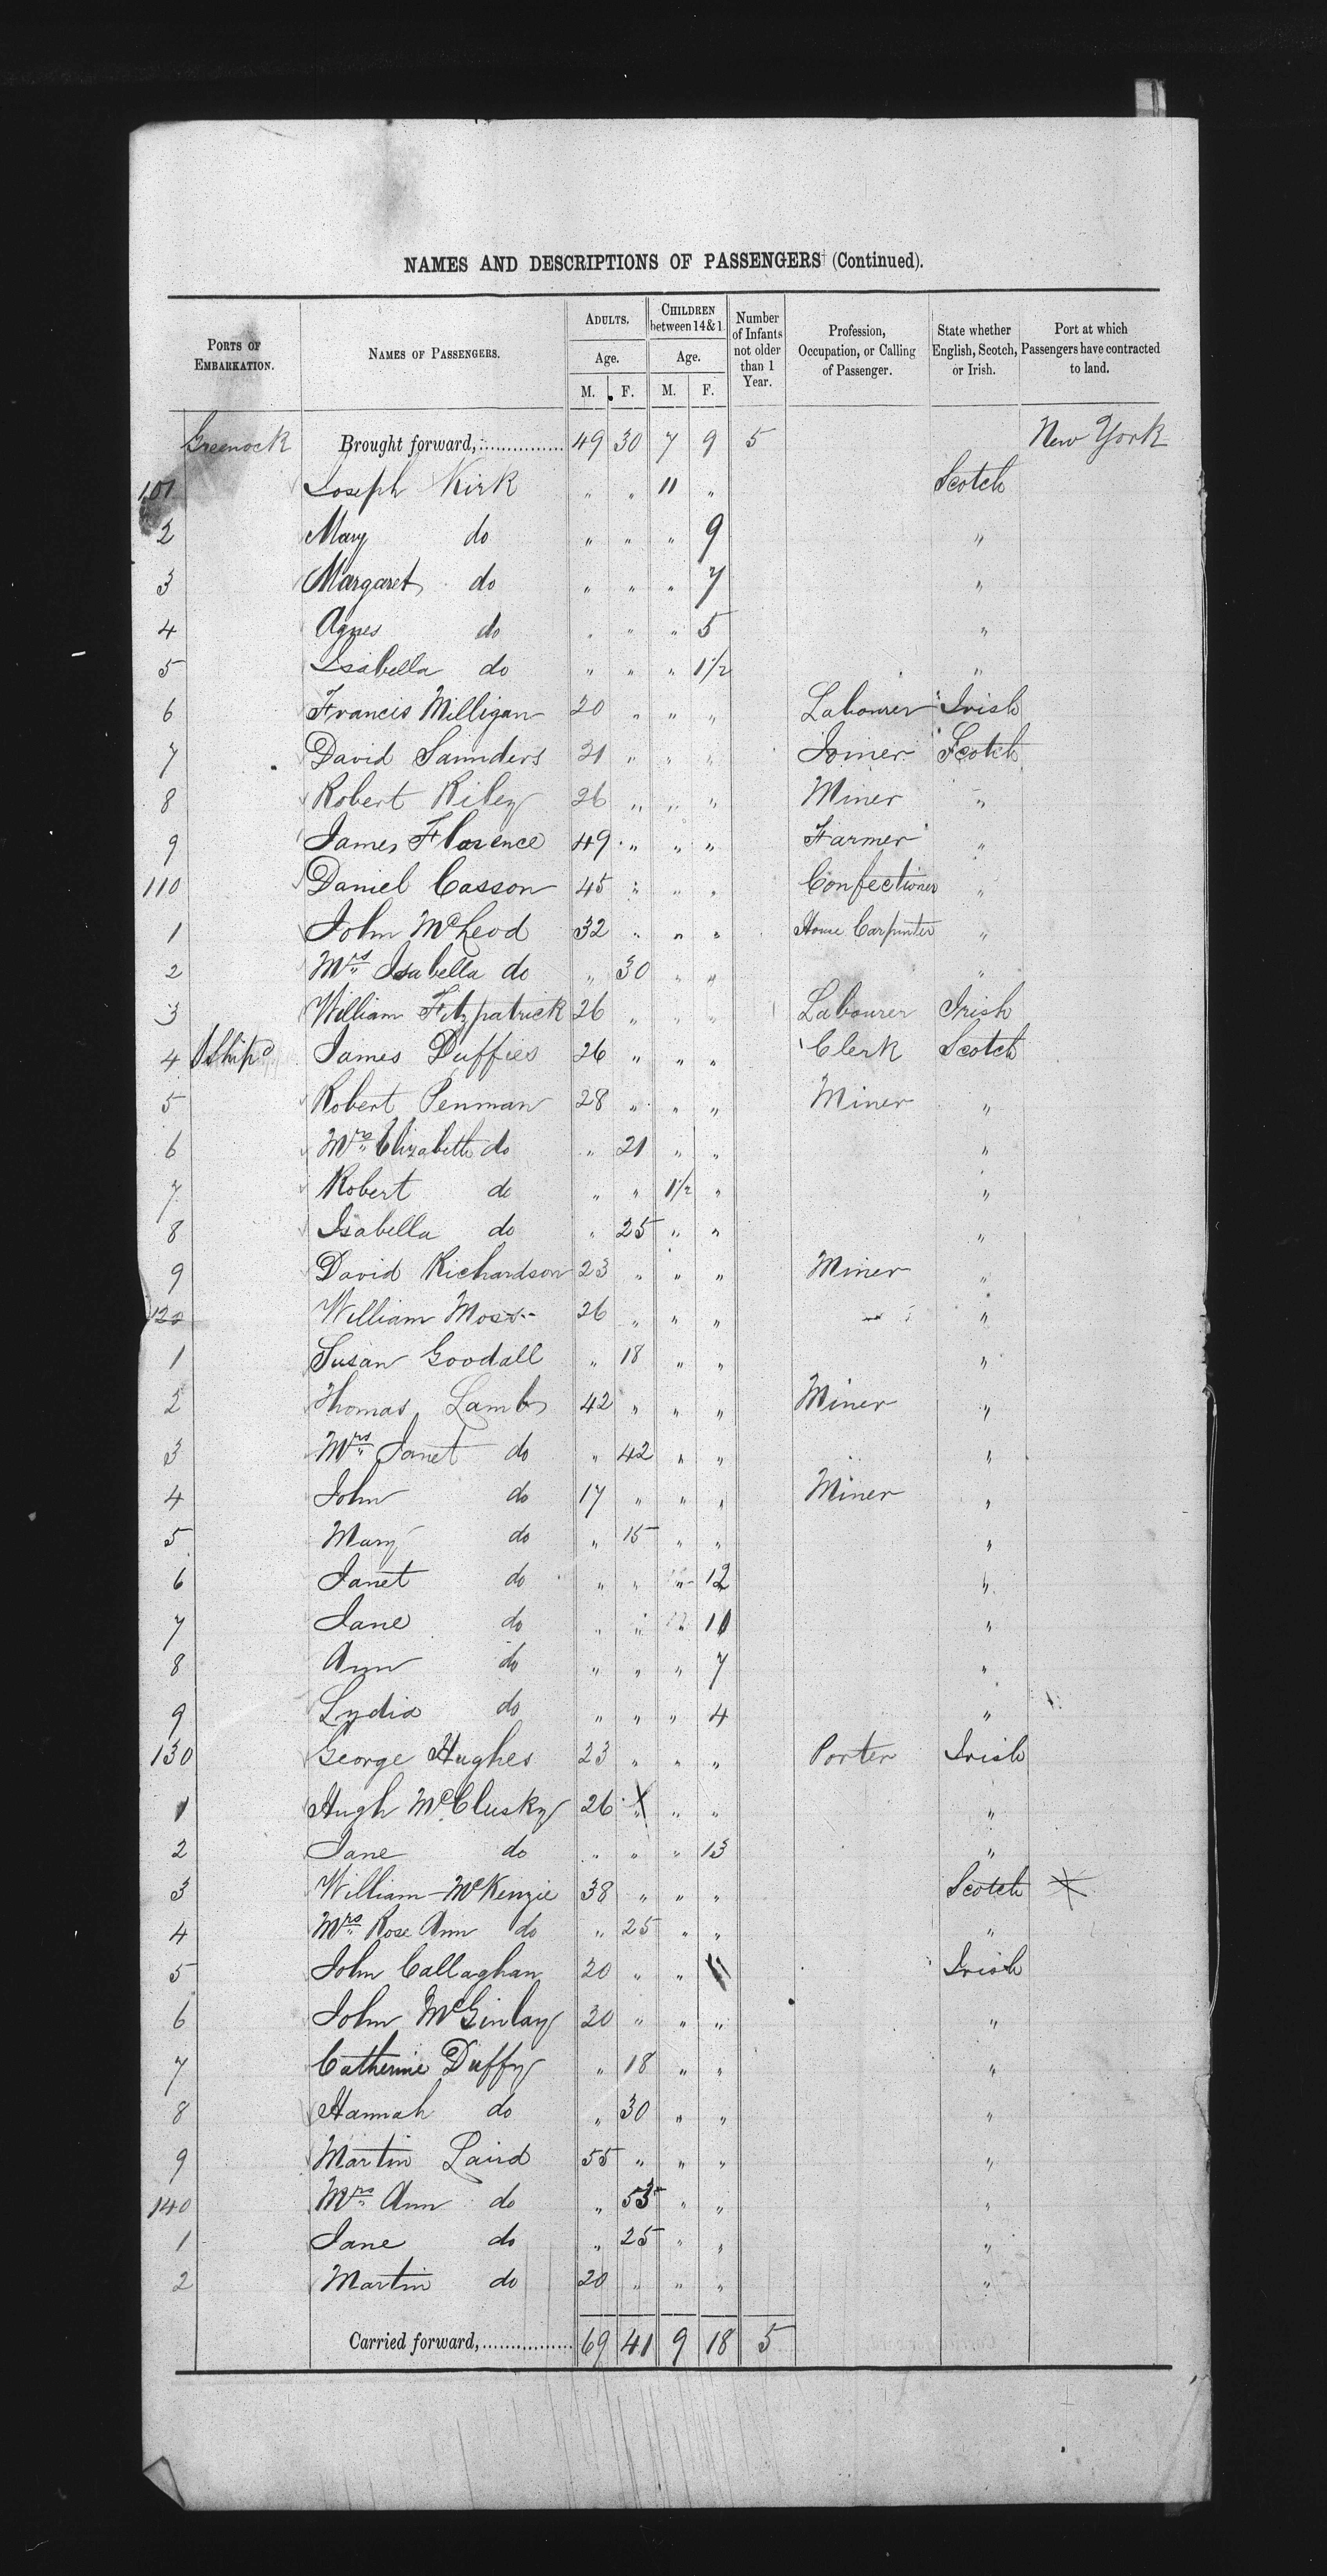 NAMES AND DESCRIPTIONS OF PASSENGERS (Continued).
PORTS OF EMBARKATION. NAMES OF PASSENGERS. ADULTS. Age. M. F. CHILDREN between 14 & 1. Age. M. F. Number of Infants not older than 1 Year. Profession, Occupation, or Calling of Passenger. State whether English, Scotch, or Irish. Port at which Passengers have contracted to land.
Greenock Brought forward, 49 30 7 9 5 New York
101 Joseph Kirk " " 11 " Scotch
2 Mary do " " " 9 "
3 Margaret do " " " 7 "
4 Agnes do " " " 5 "
5 Isabella do " " " 1½ "
6 Francis Milligan 20 " " " Labourer Irish
7 David Saunders 21 " " " Joiner Scotch
8 Robert Riley 26 " " " Miner "
9 James Florence 49 " " " Farmer "
110 Daniel Casson 45 " " " Confectioner "
1 John McLeod 32 " " " House Carpenter "
2 Mrs Isabella do " 30 " " "
3 William Fitzpatrick 26 " " " Labourer Irish
4 James Duffies 26 " " " Clerk Scotch
5 Robert Penman 28 " " " Miner "
6 Mrs Elizabeth do " 21 " " "
7 Robert do " " 1½ " "
8 Isabella do " 25 " " "
9 David Richardson 23 " " " Miner "
120 William Moss 26 " " " "
1 Susan Goodall " 18 " " "
2 Thomas Lamb 42 " " " Miner "
3 Mrs Janet do " 42 " " "
4 John do 17 " " " Miner "
5 Mary do " 15 " " "
6 Janet do " " " 12 "
7 Jane do " " " 10 "
8 Ann do " " " 7 "
9 Lydia do " " " 4 "
130 George Hughes 23 " " " Porter Irish
1 Hugh McClusky 26 " " " "
2 Jane do " " " 13 "
3 William McKenzie 38 " " " Scotch X
4 Mrs Rose Ann do " 25 " " "
5 John Callaghan 20 " " " Irish
6 John McGinlay 20 " " " "
7 Catherine Duffy " 18 " " "
8 Hannah do " 30 " " "
9 Martin Laird 55 " " " "
140 Mrs Ann do " 53 " " "
1 Jane do " 25 " " "
2 Martin do 20 " " " "
Carried forward, 69 41 9 18 5